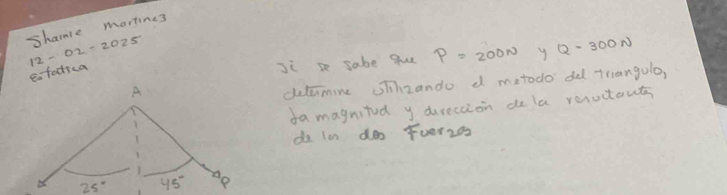 Shamie Martines
12-02-2025
estatica
Si se sabe que P = 200N y Q - 300N
determine utilizando el metodo del triangulo,
la magnitud y dirección de la resultante
de las dos Fuerzas
A
25°
45°
P